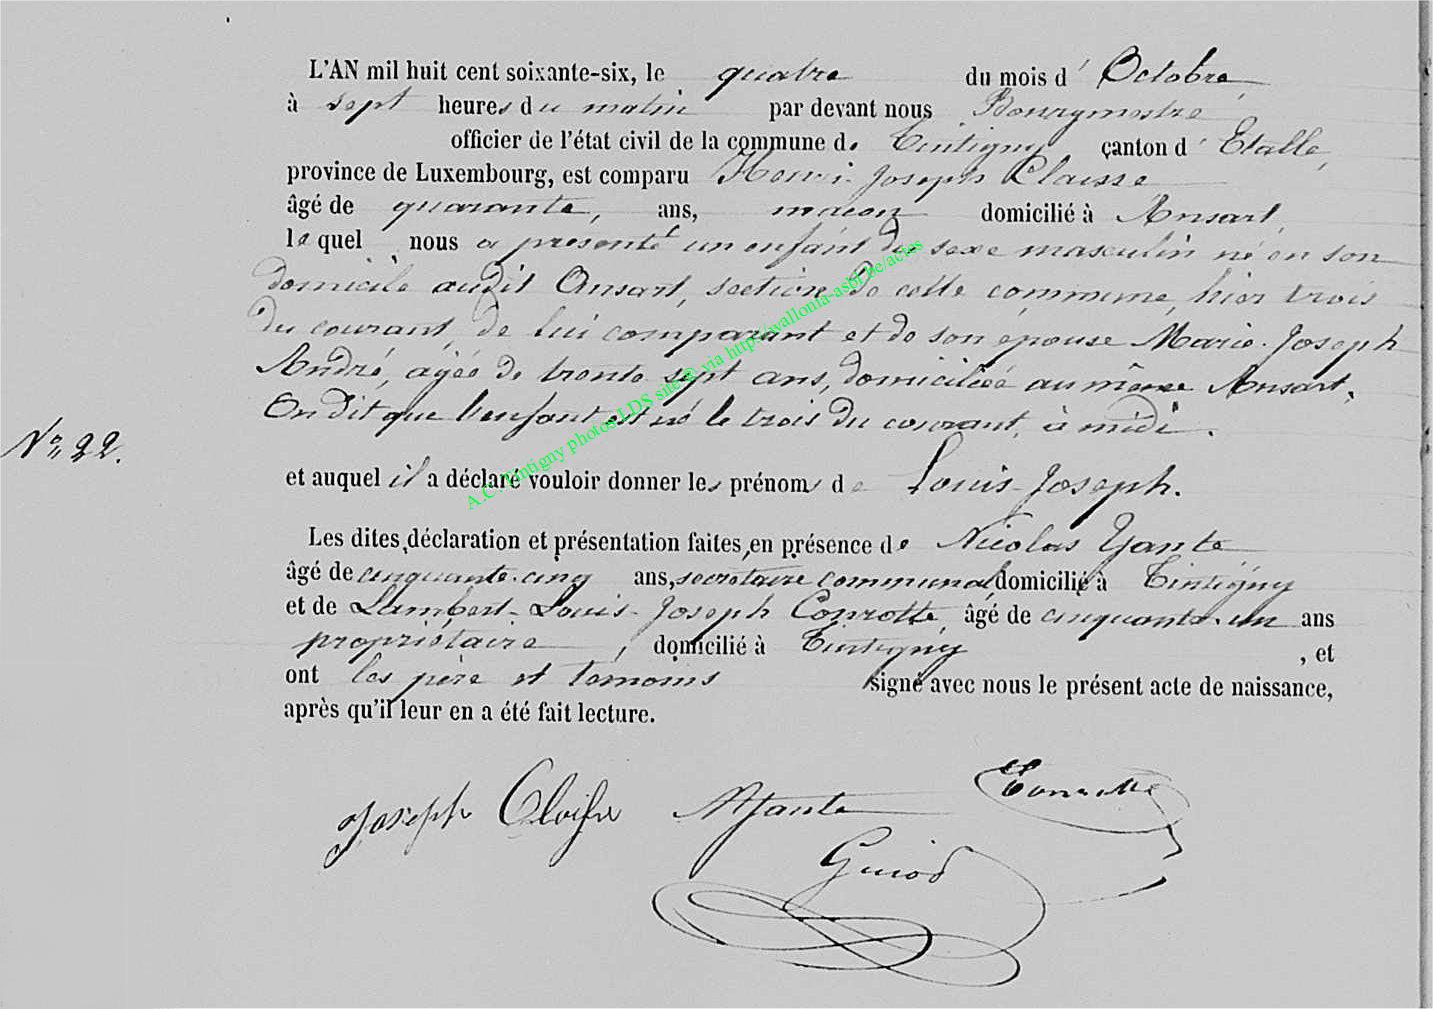 L'AN mil huit cent soixante-six, le quatre du mois d' Octobre,
à sept heures du matin par devant nous Bourgmestre
officier de l'état civil de la commune de Tintigny canton d' Etalle,
province de Luxembourg, est comparu Henri-Joseph Claisse
âgé de quarante, ans, maçon domicilié à Ansart,
lequel nous a présenté un enfant du sexe masculin né en son
domicile audit Ansart, section de cette commune, hier trois
du courant, de lui comparant et de son épouse Marie-Joseph
André, agée de trente sept ans, domiciliée au même Ansart.
On dit que l'enfant est né le trois du courant, à midi.
N° 22.
et auquel il a déclaré vouloir donner les prénoms de Louis-Joseph.
Les dites déclaration et présentation faites en présence de Nicolas Yante
âgé de cinquante-cinq ans, secrétaire communal, domicilié à Tintigny
et de Lambert-Louis-Joseph Conrotte, âgé de cinquante-un ans
propriétaire, domicilié à Tintigny, et
ont les père et témoins signé avec nous le présent acte de naissance,
après qu'il leur en a été fait lecture.
Joseph Claisse NYante Conrotte
Guiod
A.C. Tintigny photos LDS site © via http://wallonia-asbl.be/actes